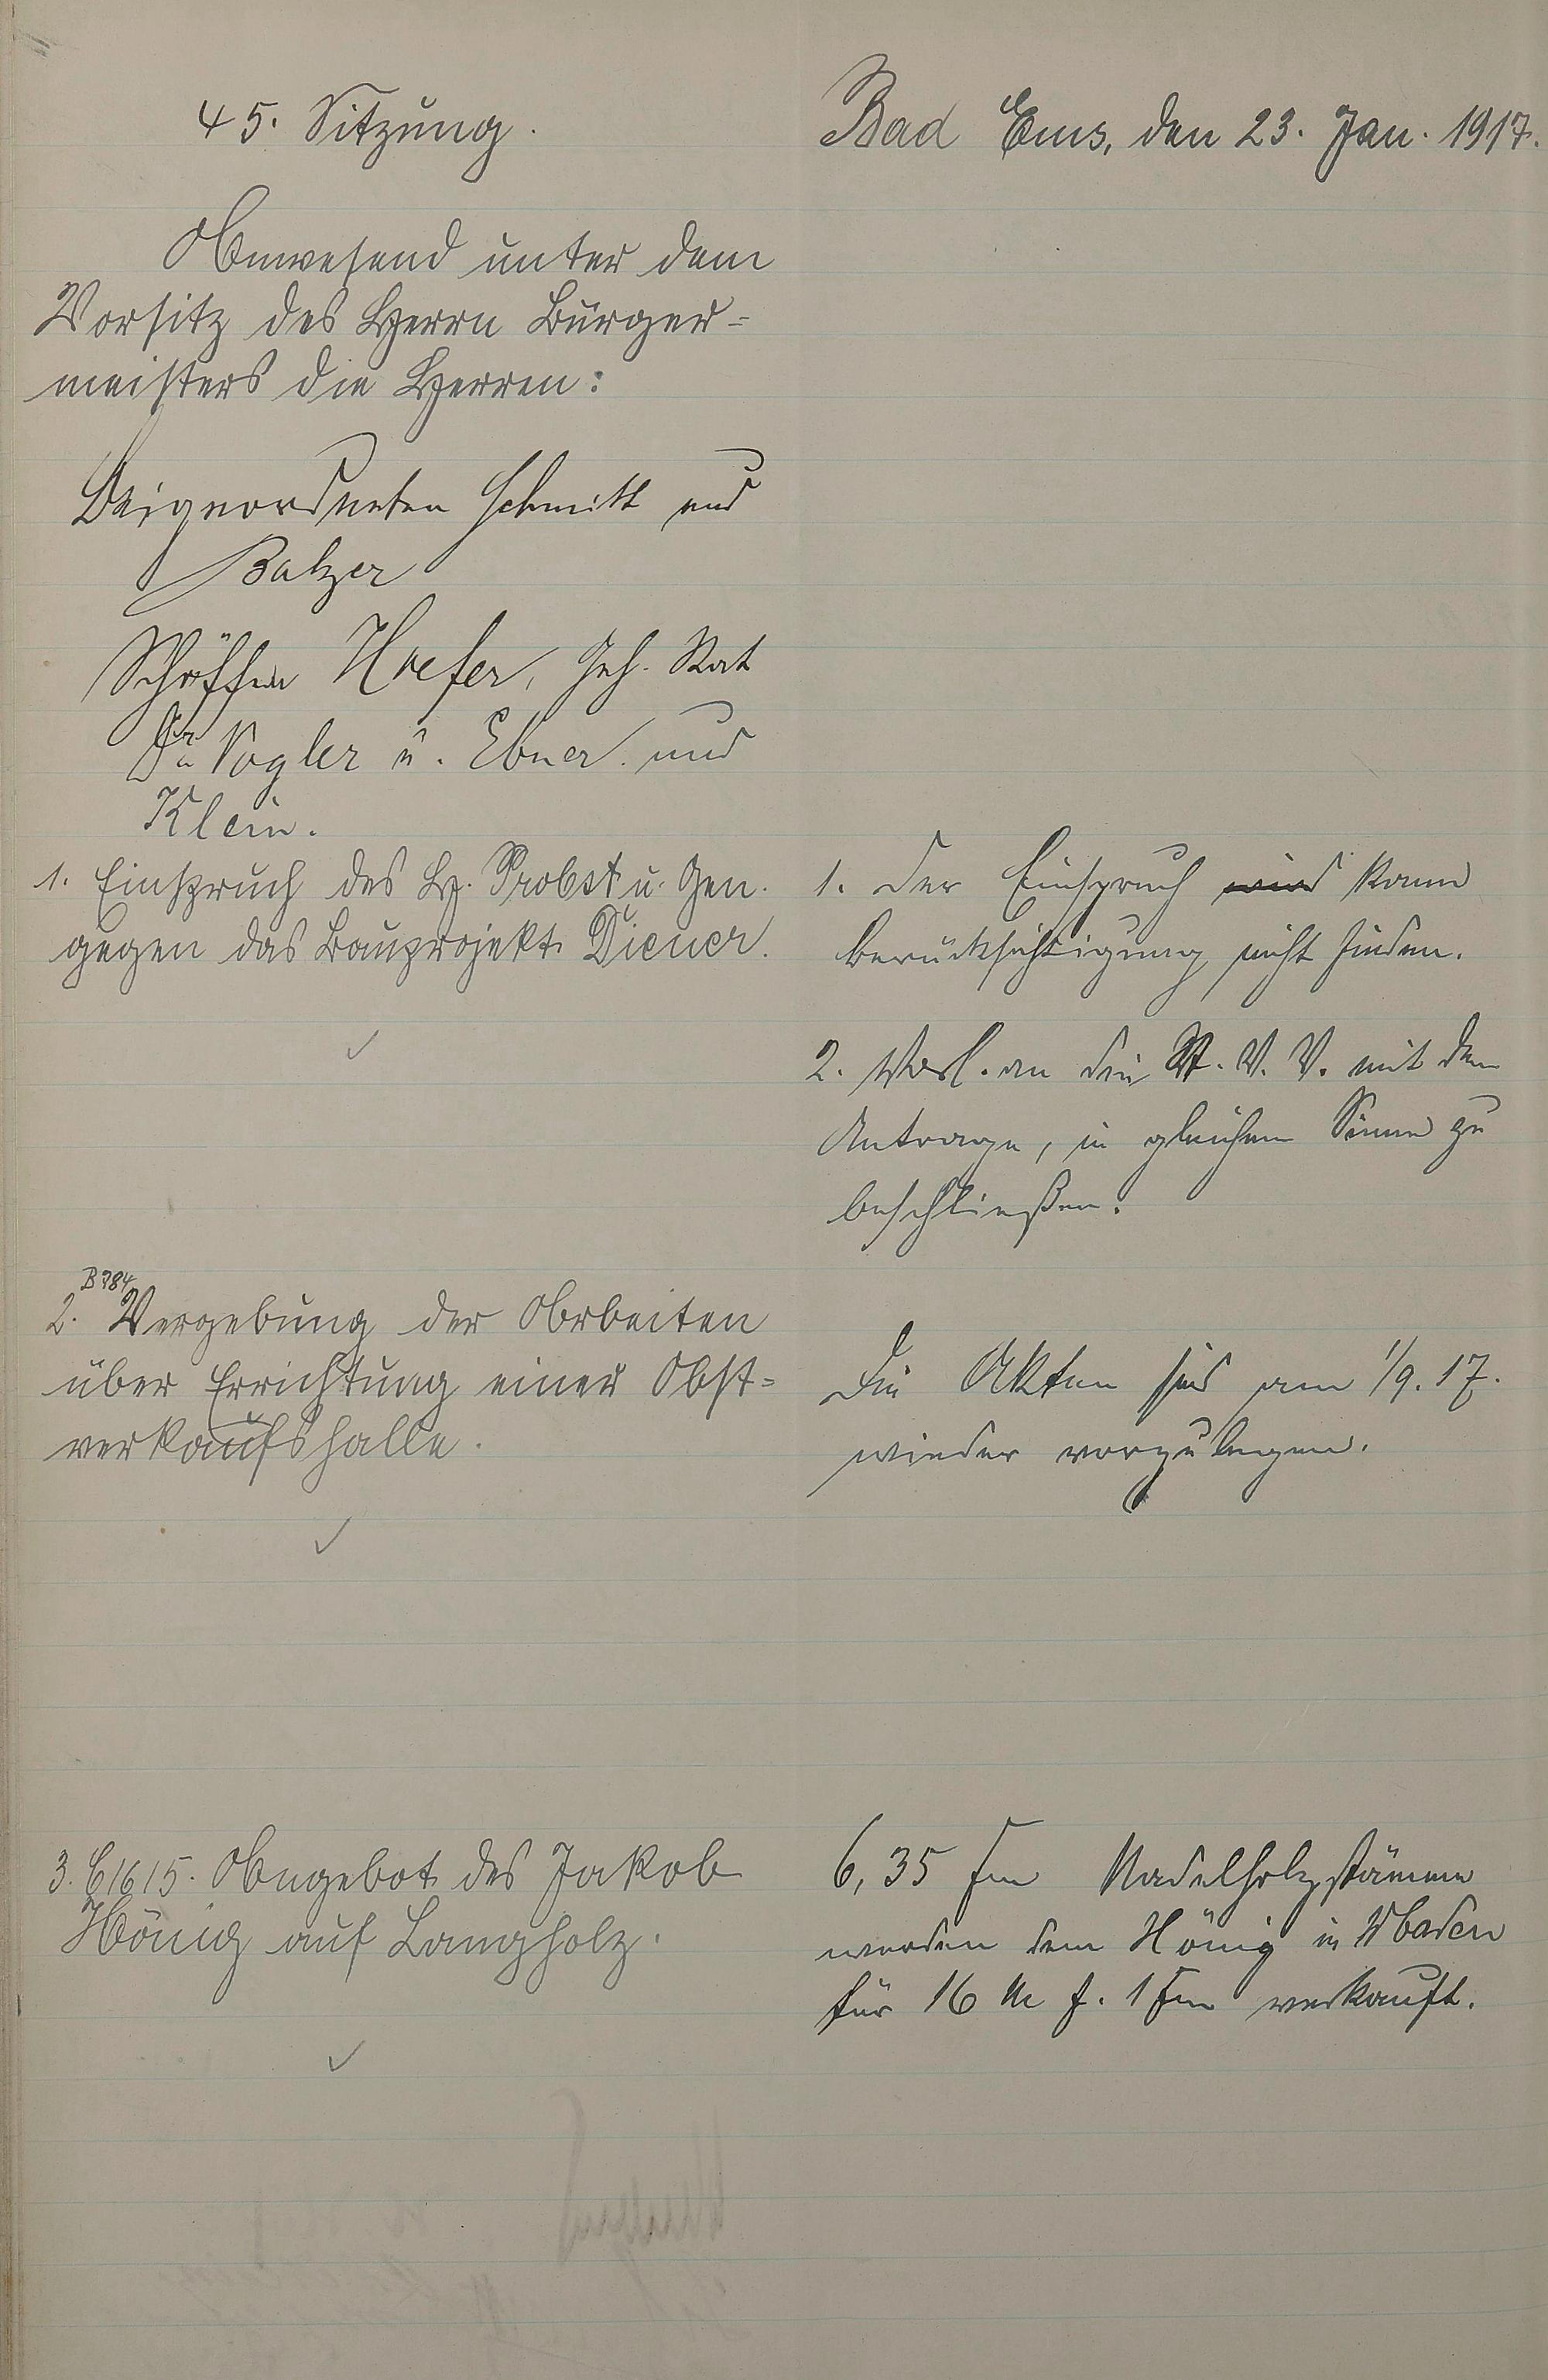 45. Sitzung.
Bad Ems, den 23. Jan. 1917.
Anwesend unter dem
Vorsitz des Herrn Bürger=
meisters die Herren:
Beigeordneten Schmitt und
Balzer
Schöffen Hoefer, Geh. Rat
Dr. Vogler u. Ebner und
Klein.
1. Einspruch des H. Probst u. Gen.
gegen das Bauprojekt Diener.
1. Der Einspruch wird kann
Berücksichtigung nicht finden.
2. Vorl. an die St. V. V. mit dem
Antrage, in gleichem Sinne zu
beschließen.
B 784
2. Vergebung der Arbeiten
über Errichtung einer Obst=
verkaufshalle.
Die Akten sind am 1/9. 17.
wieder vorzulegen.
3. C 1615. Angebot des Jakob
Hönig auf Langholz.
6,35 fm Nadelholzstämme
werden dem Hönig in
für 16 M f. 1 fm verkauft.